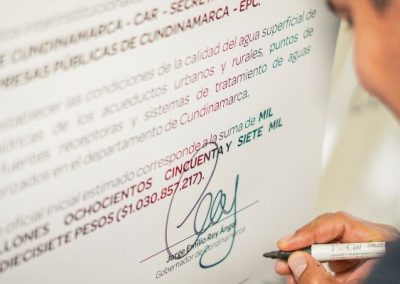 institucional
E CUNDINAMARCA - CAR - SECRE
PRESAS PÚBLICAS DE CUNDINAMARCA - EPC.
tablecer las condiciones de la calidad del agua superficial de
ídricas de los acueductos urbanos y rurales, puntos de
fuentes receptoras y sistemas de tratamiento de aguas
rizados en el departamento de Cundinamarca.
o oficial inicial estimado corresponde a la suma de MIL
LLONES OCHOCIENTOS CINCUENTA Y SIETE MIL
DIECISIETE PESOS ($1.030.857.217).
Jorge Emilio Rey Ángel
Gobernador de Cundinamarca